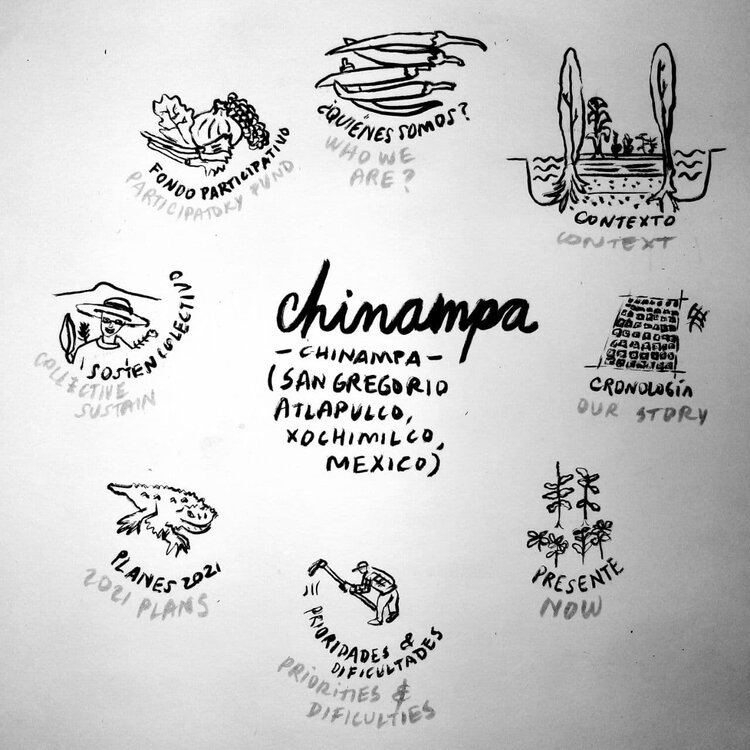 ¿QUIÉNES SOMOS?
WHO WE
ARE?
CONTEXTO
CONTEXT
CRONOLOGÍA
OUR STORY
PRESENTE
NOW
PRIORIDADES &
DIFICULTADES
PRIORITIES &
DIFICULTIES
PLANES 2021
2021 PLANS
SOSTEN COLECTIVO
COLLECTIVE
SUSTAIN
FONDO PARTICIPATIVO
PARTICIPATORY FUND
chinampa
- CHINAMPA -
(SAN GREGORIO
ATLAPULCO,
XOCHIMILCO,
MEXICO)